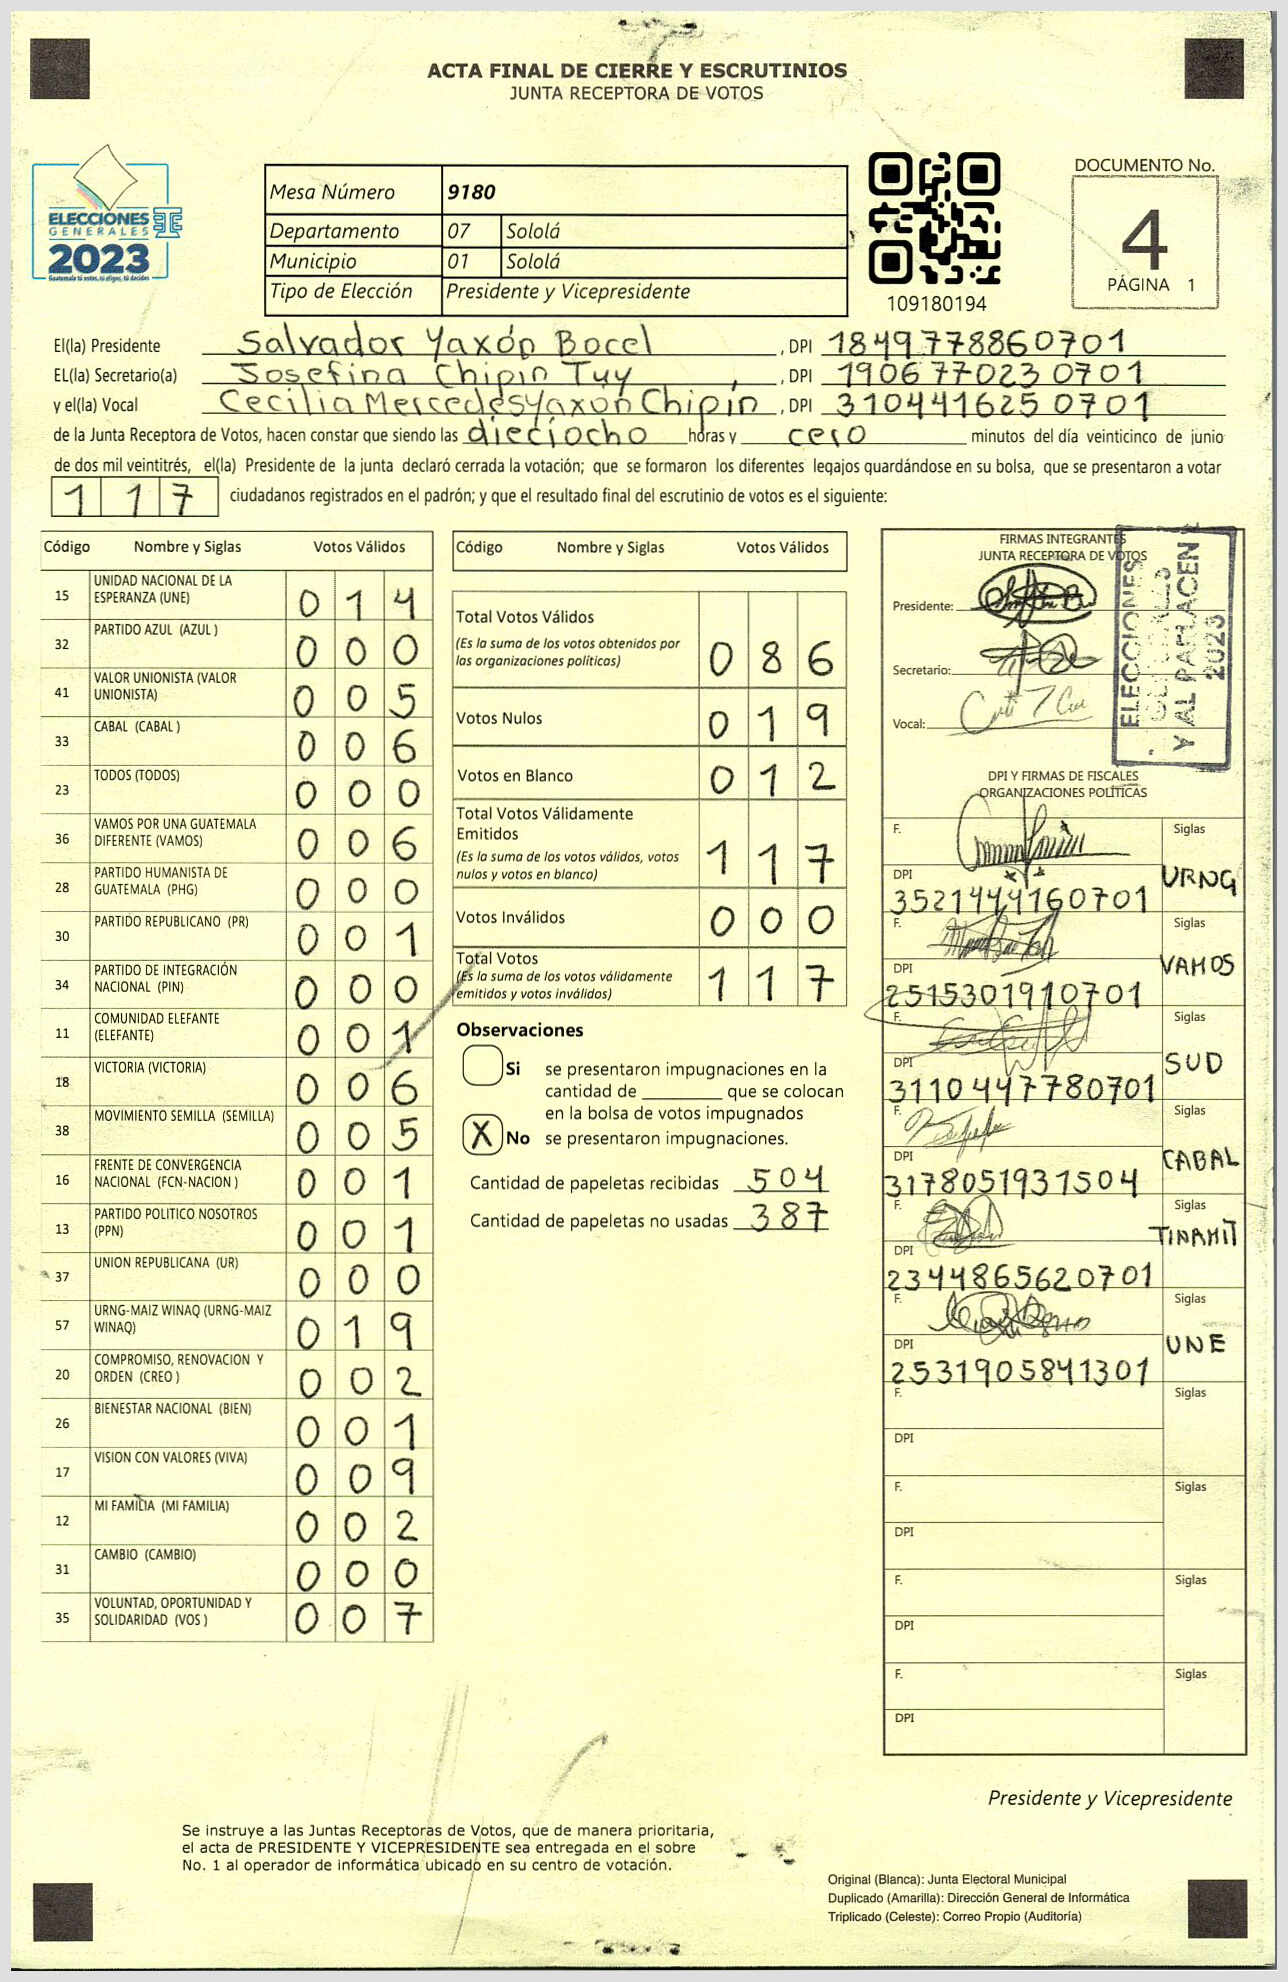 ACTA FINAL DE CIERRE Y ESCRUTINIOS
JUNTA RECEPTORA DE VOTOS
ELECCIONES
GENERALES
2023
Guatemala tú votas, tú eliges, tú decides
Mesa Número 9180
Departamento 07 Sololá
Municipio 01 Sololá
Tipo de Elección Presidente y Vicepresidente
109180194
DOCUMENTO No.
4
PÁGINA 1
El(la) Presidente Salvador Yaxón Bocel, DPI 1849778860701
EL(la) Secretario(a) Josefina Chipin Tuy, DPI 1906770230701
y el(la) Vocal Cecilia Mercedes Yaxón Chipín, DPI 3104416250701
de la Junta Receptora de Votos, hacen constar que siendo las dieciocho horas y cero minutos del día veinticinco de junio
de dos mil veintitrés, el(la) Presidente de la junta declaró cerrada la votación; que se formaron los diferentes legajos guardándose en su bolsa, que se presentaron a votar
117 ciudadanos registrados en el padrón; y que el resultado final del escrutinio de votos es el siguiente:
Código Nombre y Siglas Votos Válidos
15 UNIDAD NACIONAL DE LA ESPERANZA (UNE) 014
32 PARTIDO AZUL (AZUL ) 000
41 VALOR UNIONISTA (VALOR UNIONISTA) 005
33 CABAL (CABAL ) 006
23 TODOS (TODOS) 000
36 VAMOS POR UNA GUATEMALA DIFERENTE (VAMOS) 006
28 PARTIDO HUMANISTA DE GUATEMALA (PHG) 000
30 PARTIDO REPUBLICANO (PR) 001
34 PARTIDO DE INTEGRACIÓN NACIONAL (PIN) 000
11 COMUNIDAD ELEFANTE (ELEFANTE) 001
18 VICTORIA (VICTORIA) 006
38 MOVIMIENTO SEMILLA (SEMILLA) 005
16 FRENTE DE CONVERGENCIA NACIONAL (FCN-NACION ) 001
13 PARTIDO POLITICO NOSOTROS (PPN) 001
37 UNION REPUBLICANA (UR) 000
57 URNG-MAIZ WINAQ (URNG-MAIZ WINAQ) 019
20 COMPROMISO, RENOVACION Y ORDEN (CREO ) 002
26 BIENESTAR NACIONAL (BIEN) 001
17 VISION CON VALORES (VIVA) 009
12 MI FAMILIA (MI FAMILIA) 002
31 CAMBIO (CAMBIO) 000
35 VOLUNTAD, OPORTUNIDAD Y SOLIDARIDAD (VOS ) 007
Código Nombre y Siglas Votos Válidos
Total Votos Válidos 086
(Es la suma de los votos obtenidos por
las organizaciones políticas)
Votos Nulos 019
Votos en Blanco 012
Total Votos Válidamente
Emitidos 117
(Es la suma de los votos válidos, votos
nulos y votos en blanco)
Votos Inválidos 000
Total Votos 117
(Es la suma de los votos válidamente
emitidos y votos inválidos)
Observaciones
Si se presentaron impugnaciones en la
cantidad de ________ que se colocan
en la bolsa de votos impugnados
X No se presentaron impugnaciones.
Cantidad de papeletas recibidas 504
Cantidad de papeletas no usadas 387
FIRMAS INTEGRANTES
JUNTA RECEPTORA DE VOTOS
Presidente:
Secretario:
Vocal:
ELECCIONES
Y AL PARLACEN
2023
DPI Y FIRMAS DE FISCALES
ORGANIZACIONES POLÍTICAS
F. Siglas
DPI URNG
3521444160701
F. Siglas
DPI VAMOS
2515301910701
F. Siglas
DPI SUD
3110447780701
F. Siglas
DPI CABAL
3178051931504
F. Siglas
DPI TINAMIT
2344865620701
F. Siglas
DPI UNE
2531905841301
F. Siglas
DPI
F. Siglas
DPI
F. Siglas
DPI
F. Siglas
DPI
Presidente y Vicepresidente
Se instruye a las Juntas Receptoras de Votos, que de manera prioritaria,
el acta de PRESIDENTE Y VICEPRESIDENTE sea entregada en el sobre
No. 1 al operador de informática ubicado en su centro de votación.
Original (Blanca): Junta Electoral Municipal
Duplicado (Amarilla): Dirección General de Informática
Triplicado (Celeste): Correo Propio (Auditoría)